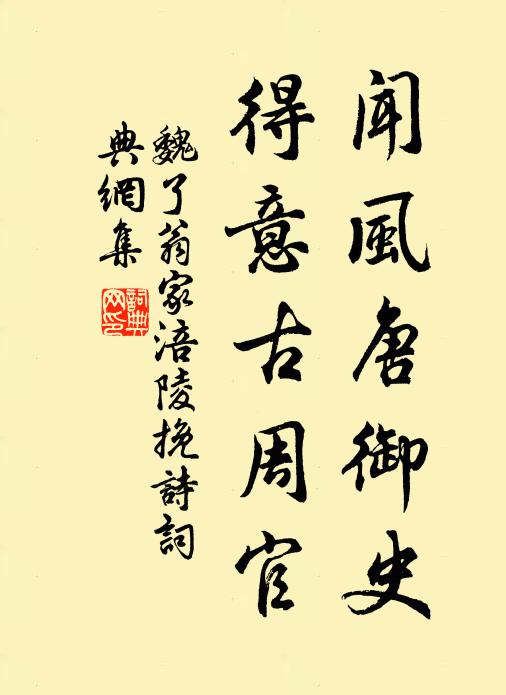 聞風唐御史
得意古周官
魏了翁家涪陵挽詩詞
典網集
詞典
网印